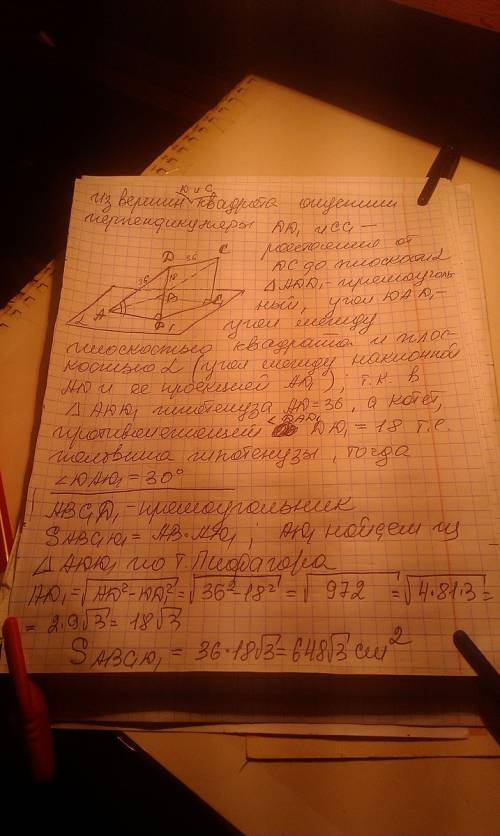 D и C
из вершин квадрата опустим
перпендикуляры DD₁ и CC₁ –
расстояние от
DC до плоскости α
△ADD₁ – прямоуголь-
ный, угол DAD₁ –
угол между
плоскостью квадрата и плос-
костью α (угол между наклонной
AD и ее проекцией AD₁), т.к. в
△ADD₁ гипотенуза AD=36, а катет,
противолежащей ∠DAD₁ DD₁ = 18 т.е.
половина гипотенузы, тогда
∠DAD₁ = 30°
ABC₁D₁ – прямоугольник
S ABC₁D₁ = AB·AD₁ ; AD₁ найдем из
△ADD₁ по т. Пифагора
AD₁ = √AD² – DD₁² = √36² – 18² = √972 = √4·81·3 =
= 2·9√3 = 18√3
S ABC₁D₁ = 36·18√3 = 648√3 см²
D
C
36
36
18
A
B
C₁
D₁
α